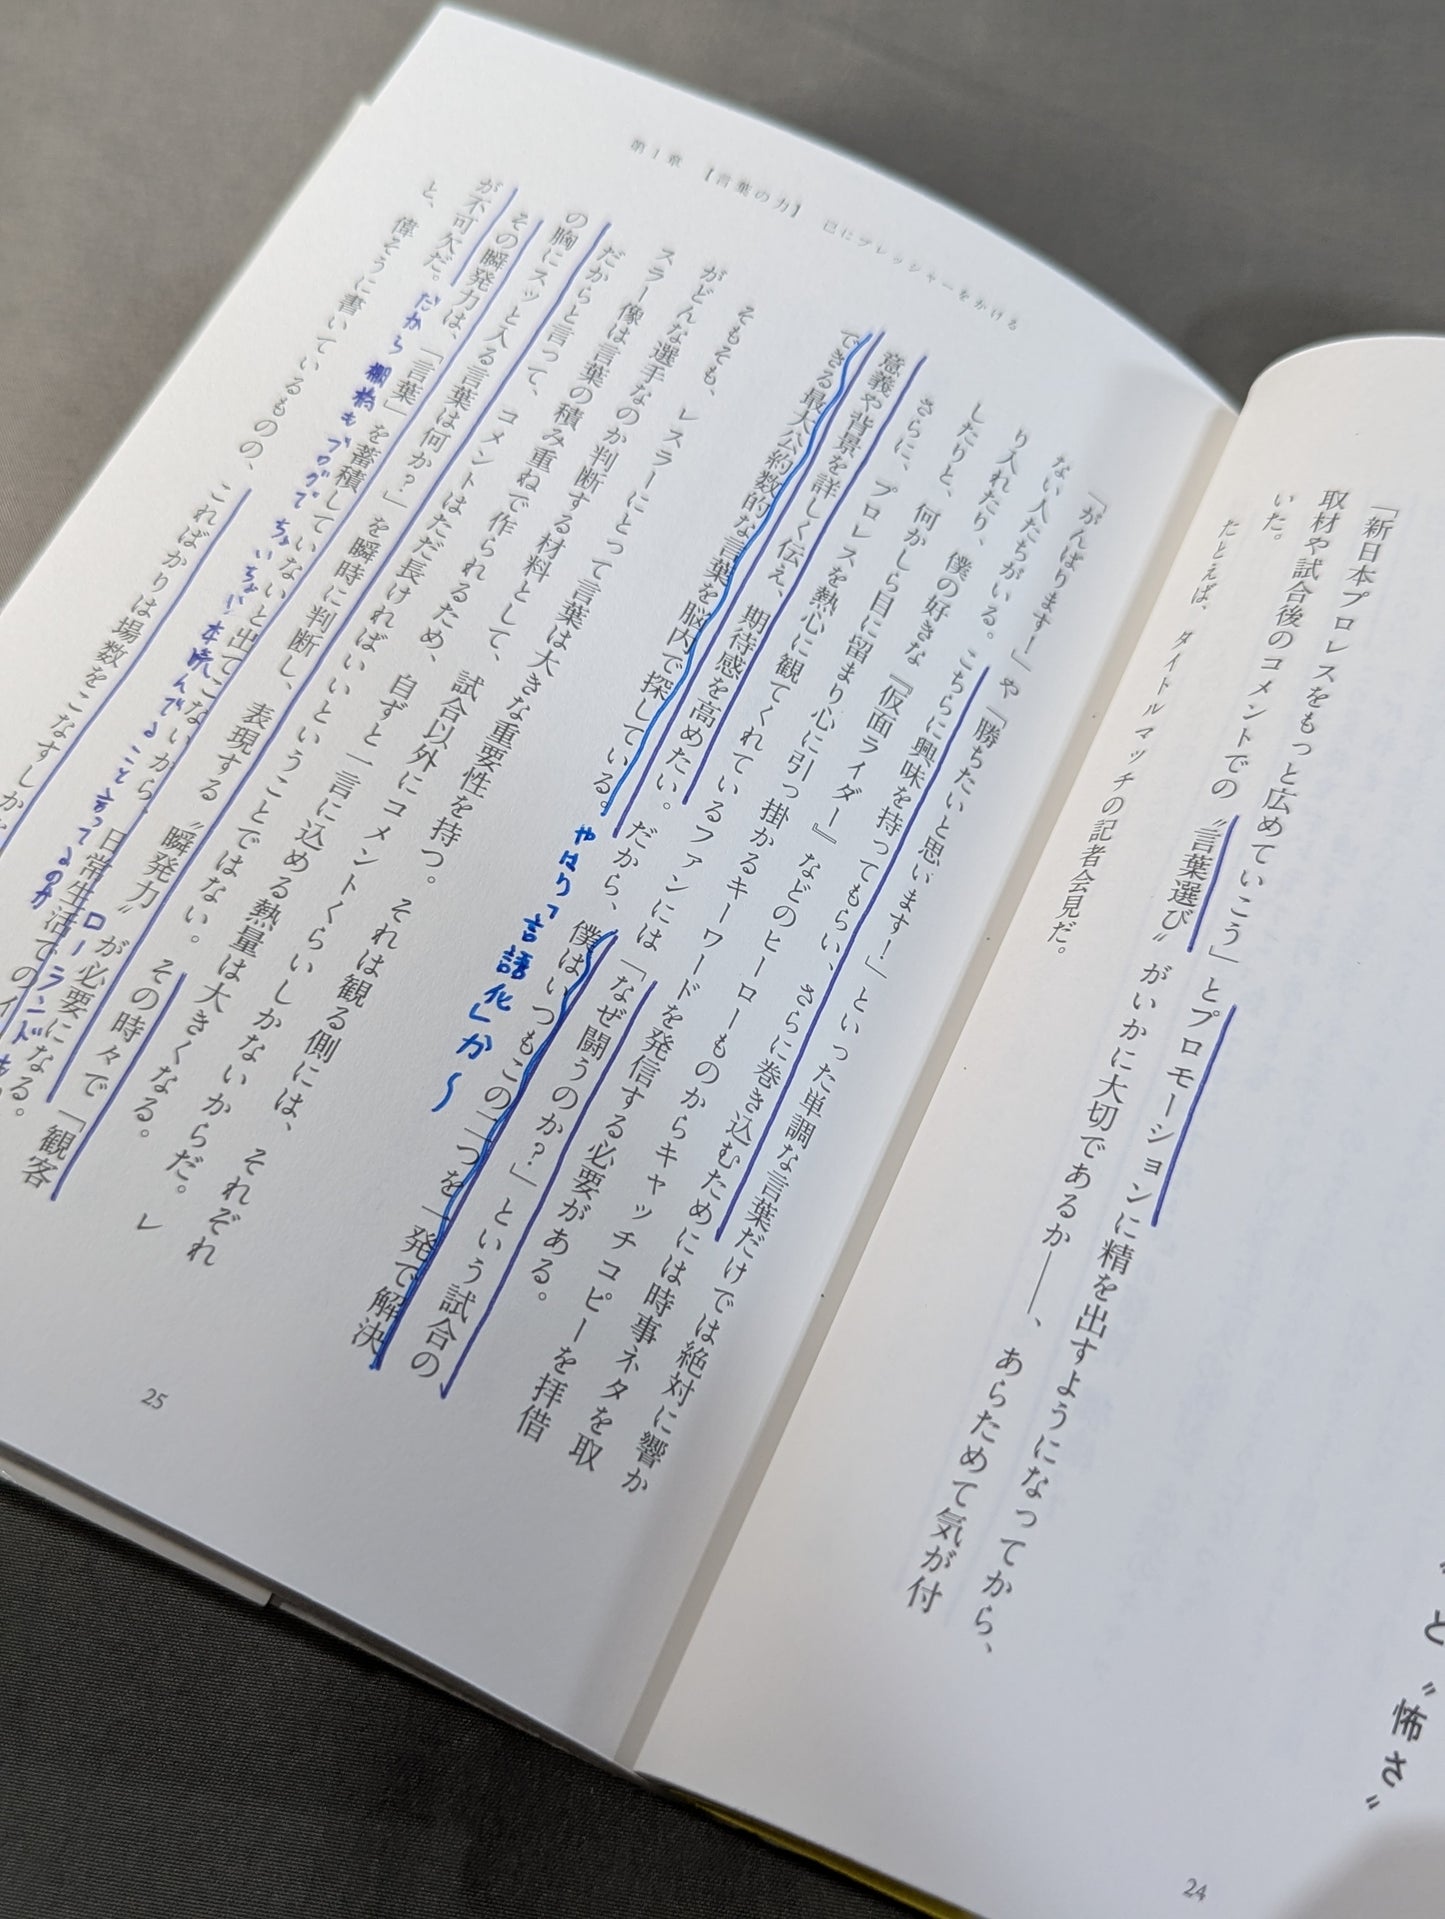 〟と〝怖さ〟
「新日本プロレスをもっと広めていこう」とプロモーションに精を出すようになってから、
取材や試合後のコメントでの〝言葉選び〟がいかに大切であるか――、あらためて気が付
いた。
たとえば、タイトルマッチの記者会見だ。
24
第1章 【言葉の力】 己にプレッシャーをかける
「がんばります！」や「勝ちたいと思います！」といった単調な言葉だけでは絶対に響か
ない人たちがいる。こちらに興味を持ってもらい、さらに巻き込むためには時事ネタを取
り入れたり、僕の好きな『仮面ライダー』などのヒーローものからキャッチコピーを拝借
したりと、何かしら目に留まり心に引っ掛かるキーワードを発信する必要がある。
さらに、プロレスを熱心に観てくれているファンには「なぜ闘うのか？」という試合の
意義や背景を詳しく伝え、期待感を高めたい。だから、僕はいつもこの二つを一発で解決
できる最大公約数的な言葉を脳内で探している。
やはり「言語化」か〜
そもそも、レスラーにとって言葉は大きな重要性を持つ。それは観る側には、それぞれ
がどんな選手なのか判断する材料として、試合以外にコメントくらいしかないからだ。レ
スラー像は言葉の積み重ねで作られるため、自ずと一言に込める熱量は大きくなる。
だからと言って、コメントはただ長ければいいということではない。その時々で「観客
の胸にスッと入る言葉は何か？」を瞬時に判断し、表現する〝瞬発力〟が必要になる。
その瞬発力は、「言葉」を蓄積していないと出てこないから、日常生活でのイ
が不可欠だ。
だから棚橋もブログでちょいちょい本読んでること言ってるのか
ローランドも
と、偉そうに書いているものの、こればかりは場数をこなすしか
25